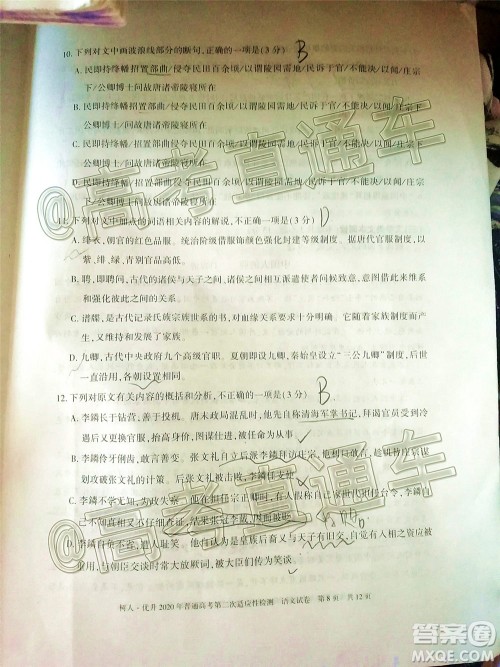 10. 下列对文中画波浪线部分的断句,正确的一项是(3分) B
A. 民即持绛幡招置部曲/侵夺民田百余顷/以谓陵园需地/民诉于官/不能决/以闻/庄宗
下/公卿博士问故唐诸帝陵寝所在
B. 民即持绛幡/招置部曲/侵夺民田百余顷/以谓陵园需地/民诉于官/不能决/以闻/庄宗
下公卿博士/问故唐诸帝陵寝所在
C. 民即持绛幡/招置部曲/侵夺民田百余顷/以谓陵园需地/民诉于官/不能决/以闻/庄宗
下/公卿博士问故唐诸帝陵寝所在
D. 民即持绛幡招置部曲/侵夺民田百余顷/以谓陵园需地/民诉于官/不能决/以闻/庄宗
下公卿博士/问故唐诸帝陵寝所在
11. 下列对文中加点的词语相关内容的解说,不正确的一项是(3分) D
A. 绯衣,朝官的红色品服。统治阶级借服饰颜色强化封建等级制度。据唐代官服制度,以
紫、绯、绿、青别官品高低。
B. 聘,即聘问,古代的诸侯与天子之间、诸侯之间相互派遣使者问候致意,意图借此来维系
和强化彼此之间的关系。
C. 谱牒,是古代记录氏族或宗族世系的书籍,对血缘关系要求严格,跟家族制度同时而产
生,又维持和发展了家族。
D. 九卿,古代中央政府九个高级官职。夏朝即设九卿,秦始皇设立“三公九卿”制度,后世
一直沿用,各朝设置相同。
12. 下列对原文有关内容的概括和分析,不正确的一项是(3分) B
A. 李鏻长于钻营,善于投机。唐末政局混乱时,他先自称清海军掌书记,拜谒官员受到冷
遇后又更换官服,抬高身价,图谋仕进,被任命为从事
B. 李鏻伶牙俐齿,敢言善变。张文礼自立后派李鏻拜访庄宗,
划攻破张文礼的计策。后张文礼被击败,李鏻任支使
C. 李鏻不学无知,为卖官爵。
D. 李鏻自命不凡,遭人耻笑。他自认为是皇族后裔又与天子有旧交,自觉有人相之资应被
重用,与朝臣交谈时常大放厥词,被大臣们传为笑谈。
柯人·优升2020年普通高考第二次适应性检测 语文试卷 第8页/共12页
@高考直通车
@高考直通车
@高考直通车
答案圈
MXQE.COM